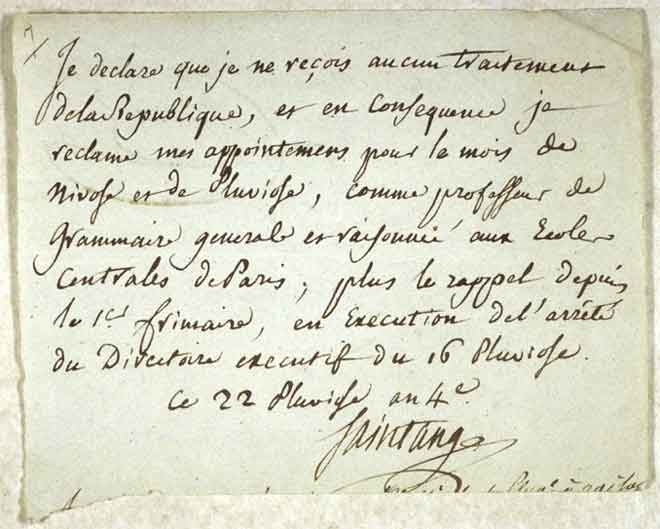 Je declare que je ne reçois aucun traitement
de la Republique, et en Consequence je
reclame mes appointemens pour le mois de
Nivose et de Pluviose, comme professeur de
Grammaire generale et raisonnée aux Ecoles
Centrales de Paris; plus le rappel depuis
le 1er frimaire, en Execution de l'arrêté
du Directoire executif du 16 Pluviose.
Ce 22 Pluviose an 4e.
Saintange